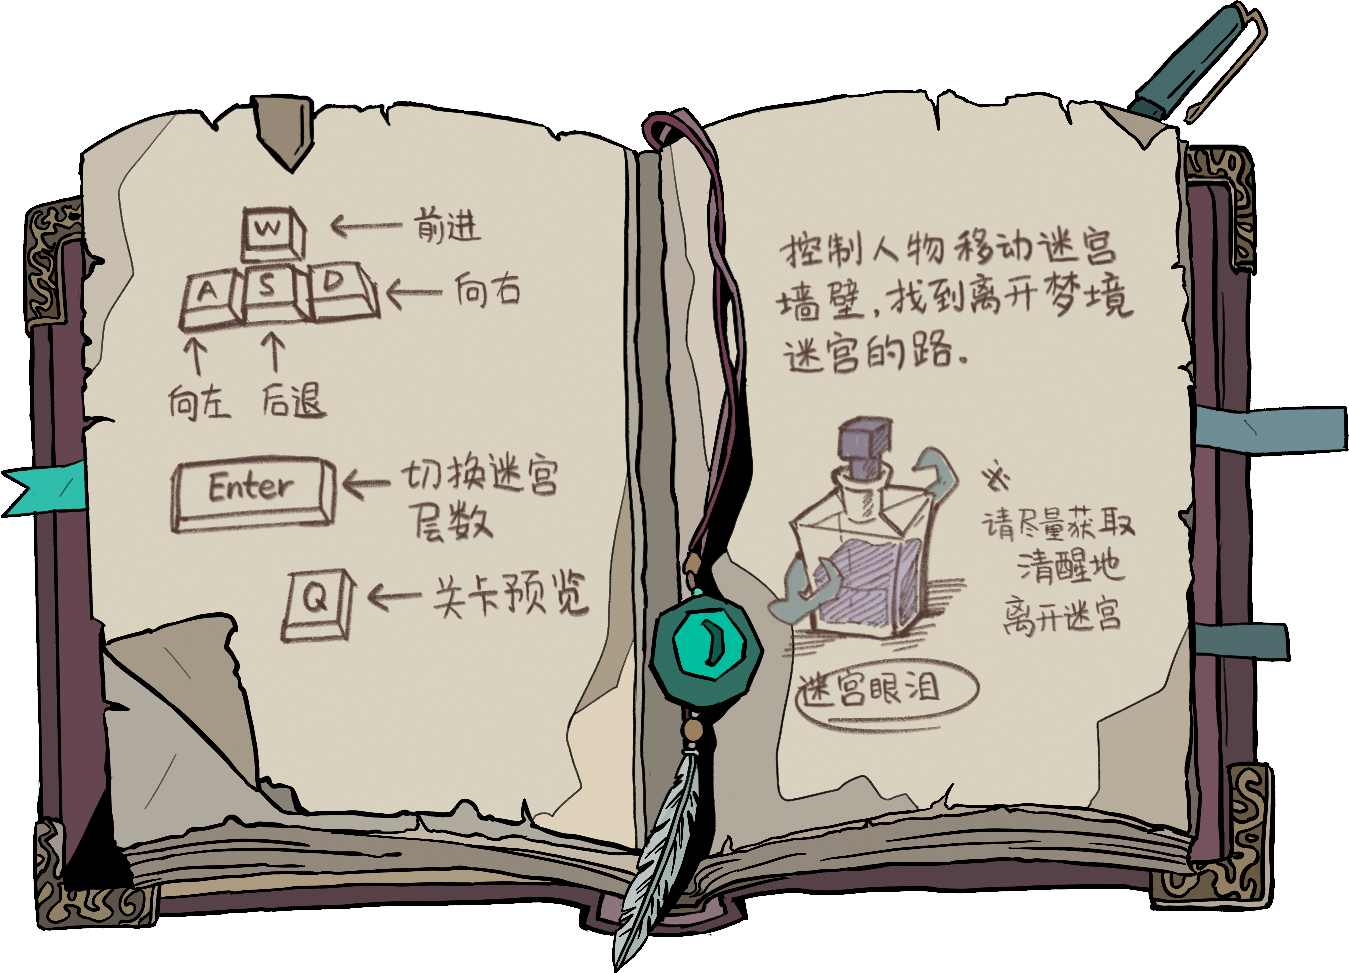 W
前进
A
S
D
向右
向左
后退
Enter
切换迷宫
层数
Q
关卡预览
控制人物移动迷宫
墙壁,找到离开梦境
迷宫的路。
※
请尽量获取
清醒地
离开迷宫
迷宫眼泪